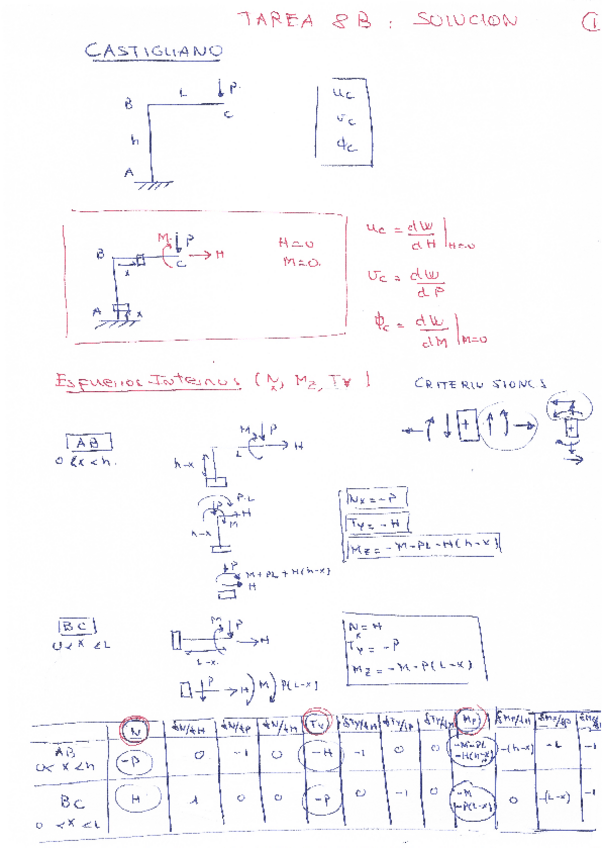 TAREA 8B: SOLUCION
1
CASTIGLIANO
L
P
B
C
h
A
uc
vc
ϕc
M
P
B
C
H
x
A
x
H=0
M=0.
uc = dW/dH |H=0
vc = dW/dP
ϕc = dW/dM |M=0
Esfuerzos Internos (Nx, Mz, Ty)
CRITERIO SIGNOS
+
+
AB
0<x<h.
M
P
L
H
h-x
P
P·L
H
M
h-x
P
M+PL+H(h-x)
H
Nx = -P
Ty = -H
Mz = -M-PL-H(h-x)
BC
0<x<L
M
P
H
L-x
P
H
M
P(L-x)
Nx = H
Ty = -P
Mz = -M-P(L-x)
N
Ty
AB
0<x<h
-P
0
-1
0
-H
-1
0
0
-M-PL
-H(h-x)
-(h-x)
-L
-1
BC
0<x<L
H
1
0
0
-P
0
-1
0
-M
-P(L-x)
0
-(L-x)
-1